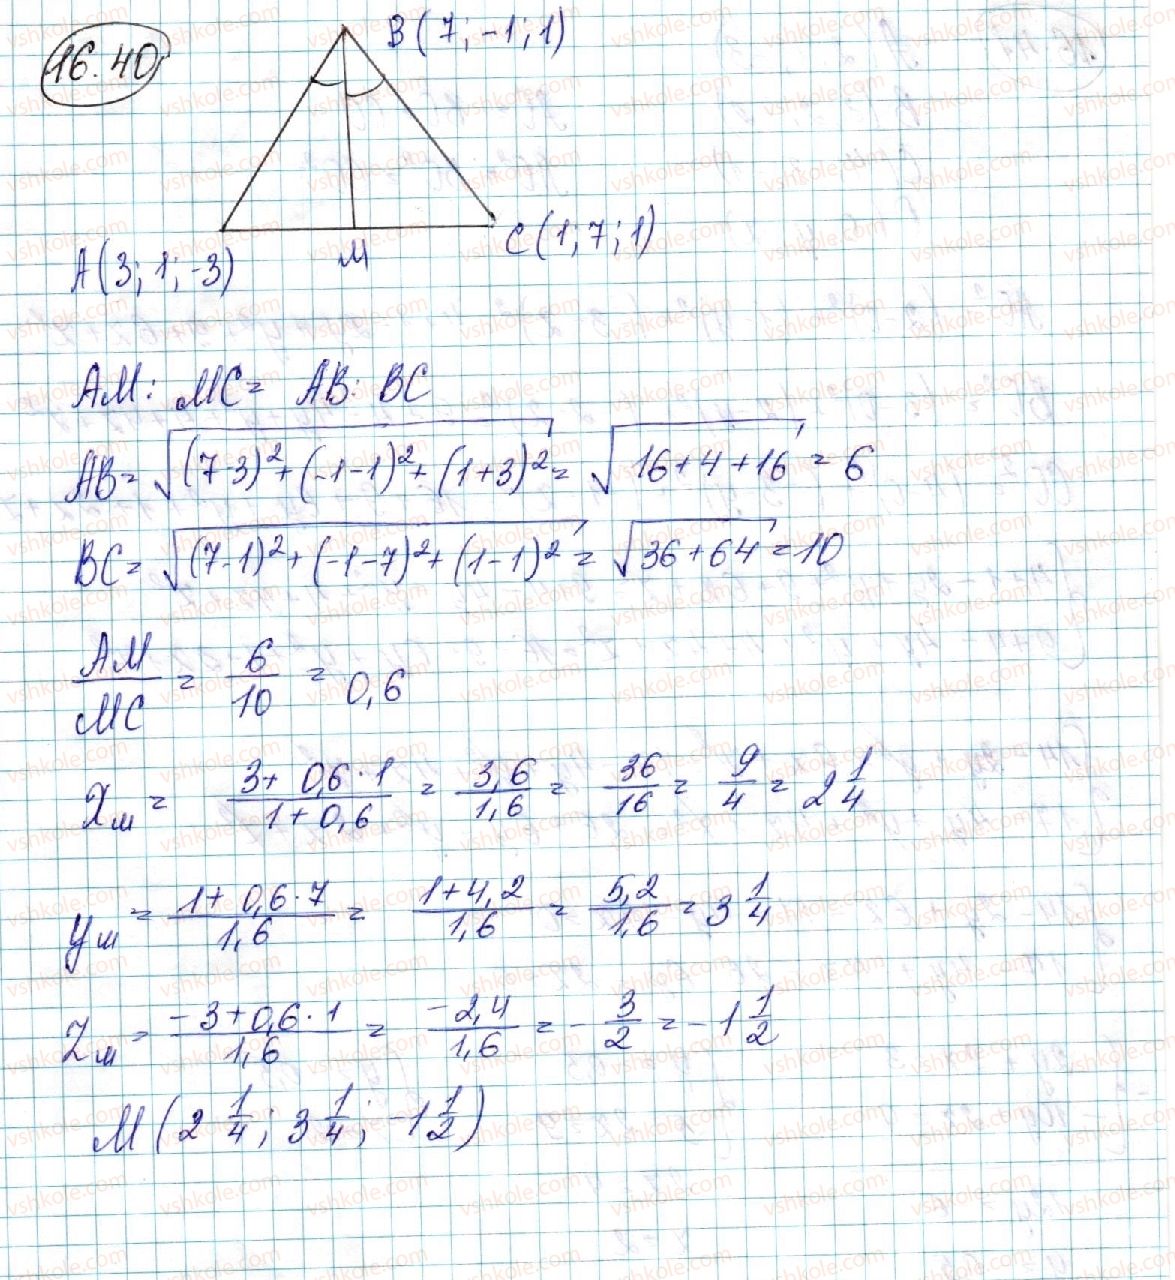 16.40
B(7; -1; 1)
A(3; 1; -3)
M
C(1; 7; 1)
AM : MC = AB : BC
AB = √((7-3)² + (-1-1)² + (1+3)²) = √(16+4+16) = 6
BC = √((7-1)² + (-1-7)² + (1-1)²) = √(36+64) = 10
AM/MC = 6/10 = 0,6
Xм = (3 + 0,6·1)/(1 + 0,6) = 3,6/1,6 = 36/16 = 9/4 = 2 1/4
Yм = (1 + 0,6·7)/1,6 = (1 + 4,2)/1,6 = 5,2/1,6 = 3 1/4
Zм = (-3 + 0,6·1)/1,6 = -2,4/1,6 = -3/2 = -1 1/2
M(2 1/4; 3 1/4; -1 1/2)
vshkole.com